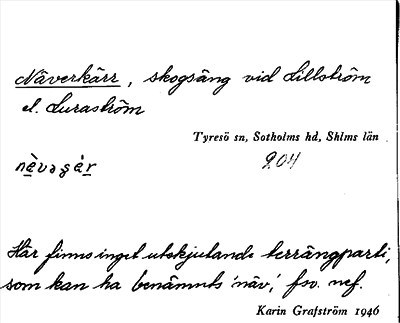 Näverkärr, skogsäng vid Lillström
el. Luraström
Tyresö sn, Sotholms hd, Shlms län
904
nèvəʂér
Här finns inget utskjutande terrängparti,
som kan ha benämnts 'näv', fsv. nef.
Karin Grafström 1946